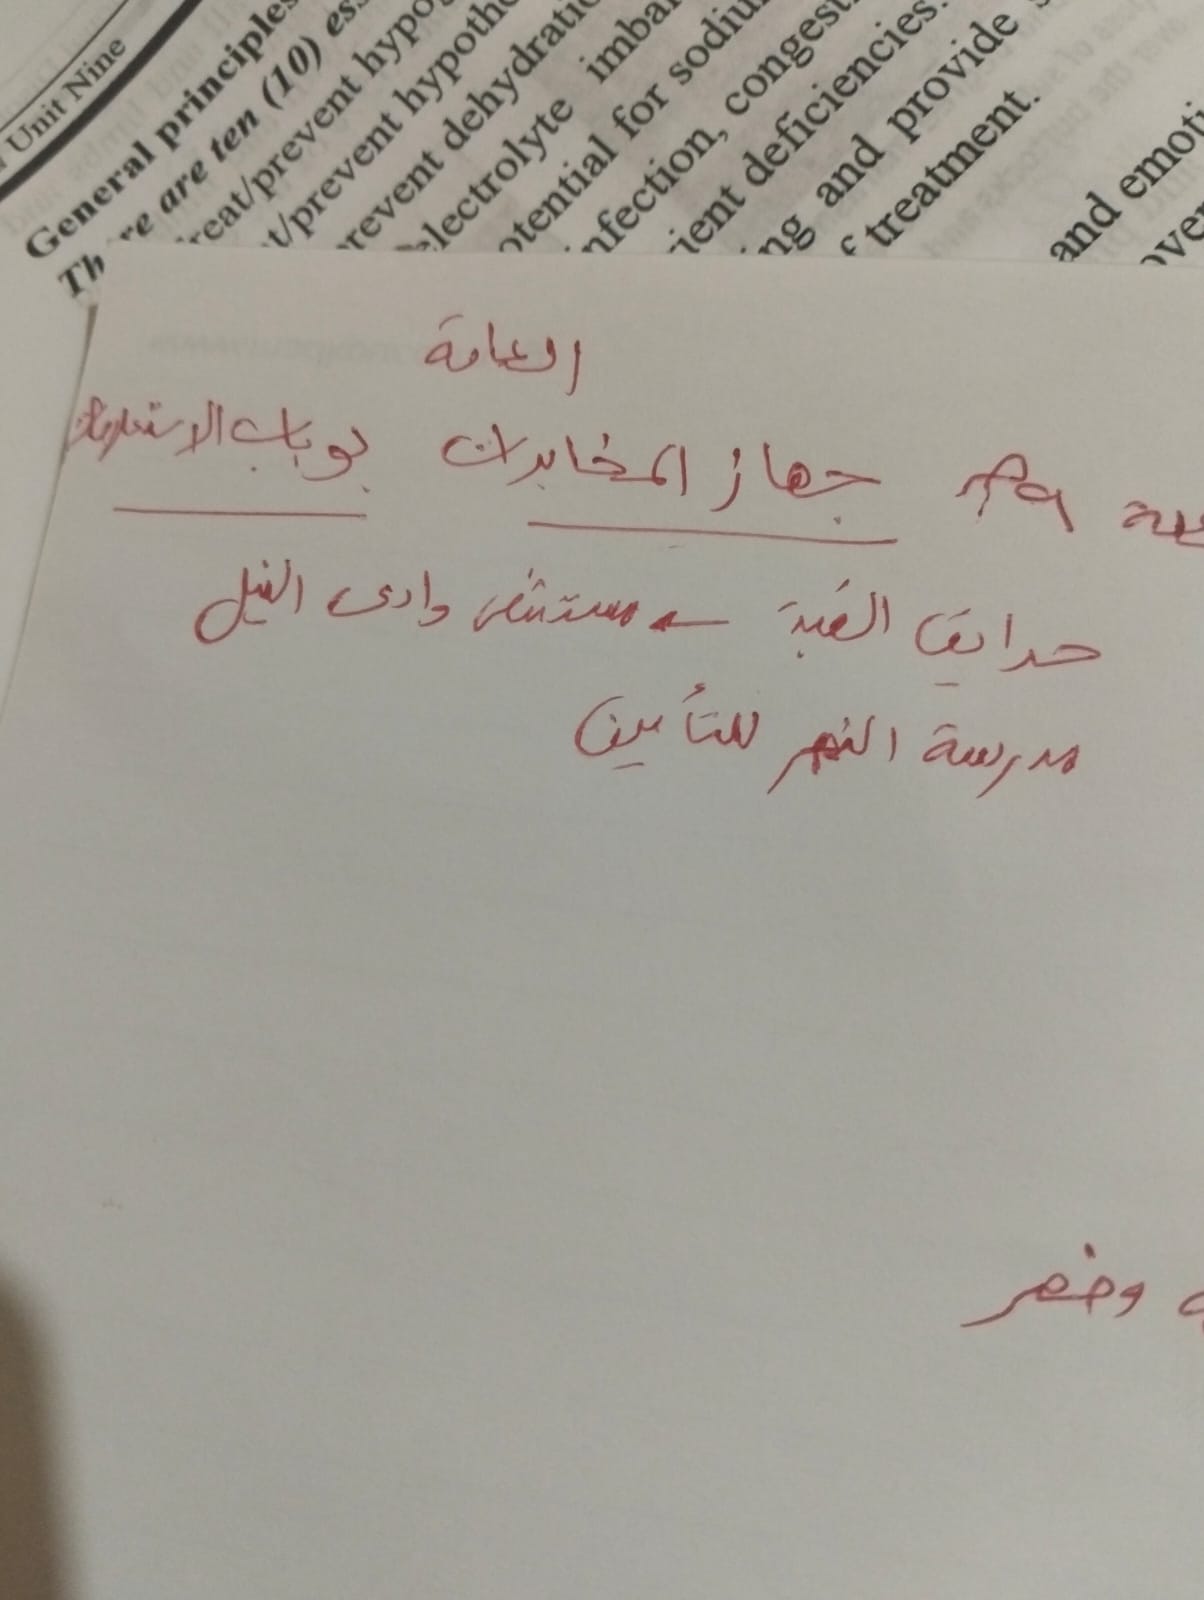 Unit Nine
General principles
There are ten (10) es
reat/prevent hypo
t/prevent hypoth
revent dehydratio
electrolyte imba
otential for sodiu
nfection, congest
rient deficiencies.
ng and provide
f treatment.
and emoti
العامة
جهاز المخابرات بوباب الاستعلامات
حدايق القبة ← مستشفى وادى النيل
مدرسة النصر للتأمين
وخضر